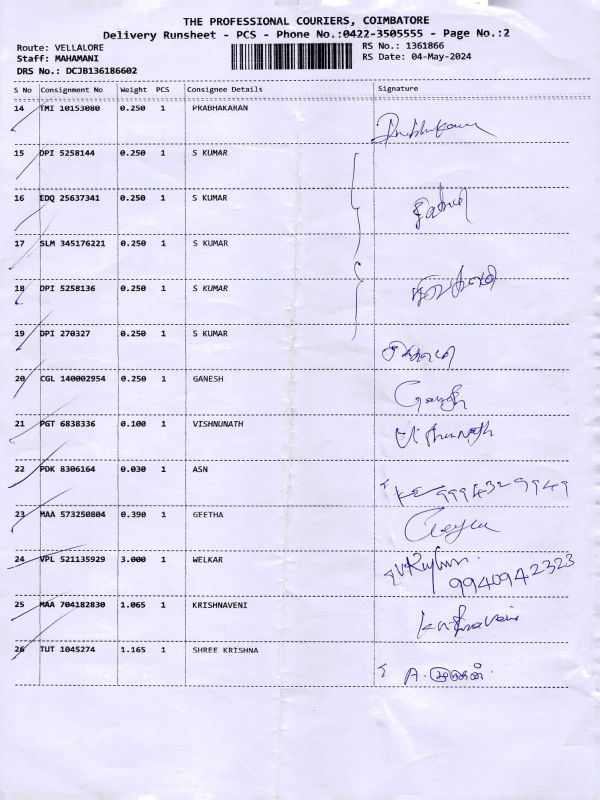 THE PROFESSIONAL COURIERS, COIMBATORE
Delivery Runsheet - PCS - Phone No.:0422-3505555 - Page No.:2
Route: VELLALORE RS No.: 1361866
Staff: MAHAMANI RS Date: 04-May-2024
DRS No.: DCJB136186602
S No Consignment No Weight PCS Consignee Details Signature
14 TMI 10153080 0.250 1 PRABHAKARAN
15 DPI 5258144 0.250 1 S KUMAR
16 EDQ 25637341 0.250 1 S KUMAR
17 SLM 345176221 0.250 1 S KUMAR
18 DPI 5258136 0.250 1 S KUMAR
19 DPI 270327 0.250 1 S KUMAR
20 CGL 140002954 0.250 1 GANESH
21 PGT 6838336 0.100 1 VISHNUNATH Vishnunath
22 PDK 8306164 0.030 1 ASN 9994329949
23 MAA 573250804 0.390 1 GEETHA
24 VPL 521135929 3.000 1 WELKAR
9940942323
25 MAA 704182830 1.065 1 KRISHNAVENI
26 TUT 1045274 1.165 1 SHREE KRISHNA A.